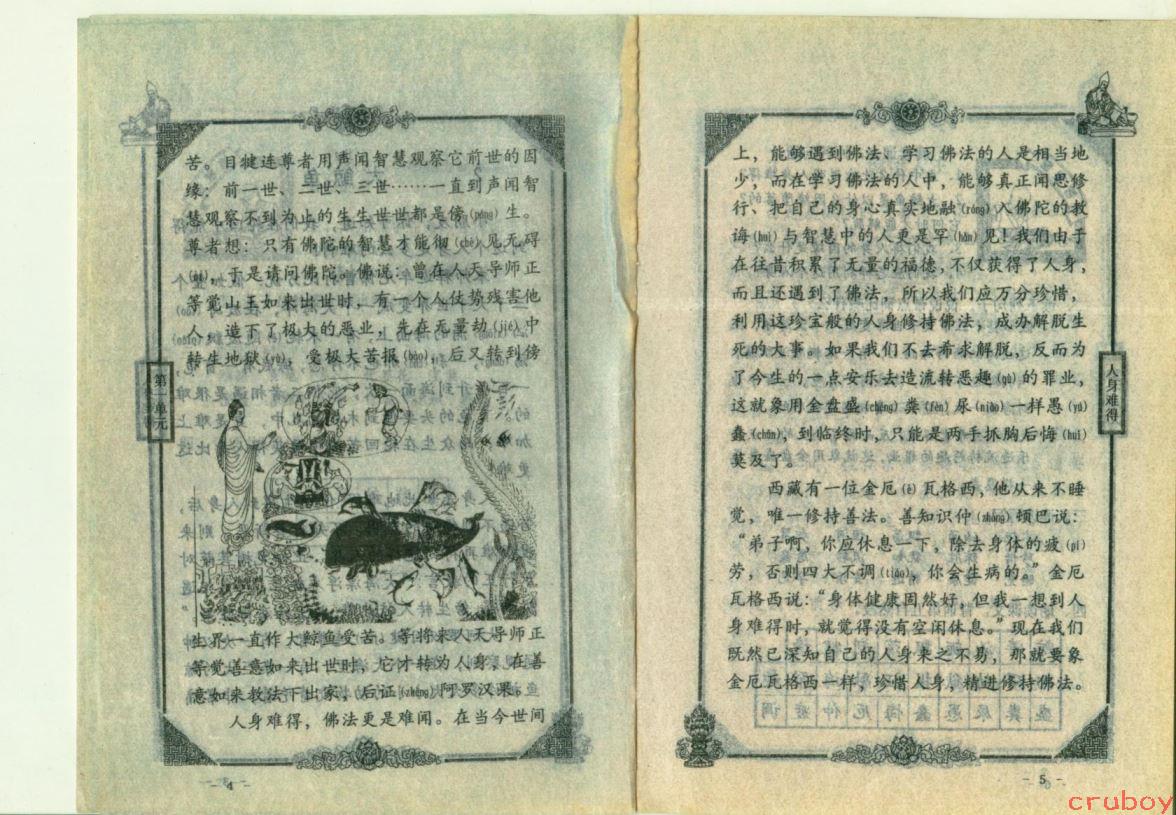 苦。目犍连尊者用声闻智慧观察它前世的因
缘：前一世、二世、三世……一直到声闻智
慧观察不到为止的生生世世都是傍(páng)生。
尊者想：只有佛陀的智慧才能彻(chè)见无碍
(ài)，于是请问佛陀。佛说：曾在人天导师正
等觉山王如来出世时，有一个人仗势残害他
人，造下了极大的恶业，先在无量劫(jié)中
转生地狱(yù)，受极大苦报(bào)，后又转到傍
生界一直作大鲸鱼受苦。等将来人天导师正
等觉善意如来出世时，它才转为人身，在善
意如来教法下出家，后证(zhèng)阿罗汉果。
人身难得，佛法更是难闻。在当今世间
第一单元
- 4 -
上，能够遇到佛法、学习佛法的人是相当地
少，而在学习佛法的人中，能够真正闻思修
行、把自己的身心真实地融(róng)入佛陀的教
诲(huì)与智慧中的人更是罕(hǎn)见！我们由于
在往昔积累了无量的福德，不仅获得了人身，
而且还遇到了佛法，所以我们应万分珍惜，
利用这珍宝般的人身修持佛法，成办解脱生
死的大事。如果我们不去希求解脱，反而为
了今生的一点安乐去造流转恶趣(qù)的罪业，
这就象用金盘盛(chéng)粪(fèn)尿(niào)一样愚(yú)
蠢(chǔn)，到临终时，只能是两手抓胸后悔(huǐ)
莫及了。
西藏有一位金厄(è)瓦格西，他从来不睡
觉，唯一修持善法。善知识仲(zhòng)顿巴说：
“弟子啊，你应休息一下，除去身体的疲(pí)
劳，否则四大不调(tiáo)，你会生病的。”金厄
瓦格西说：“身体健康固然好，但我一想到人
身难得时，就觉得没有空闲休息。”现在我们
既然已深知自己的人身来之不易，那就要象
金厄瓦格西一样，珍惜人身，精进修持佛法。
人身难得
- 5 -
cruboy